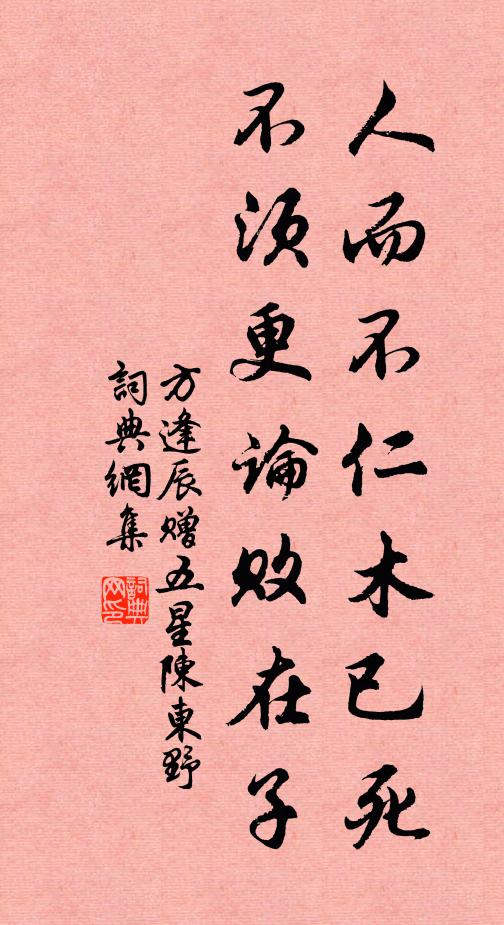 人而不仁木已死
不须更論败在子
方逢辰赠五星陳東野
詞典網集
詞典网印